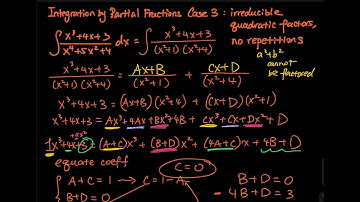 Integration by Partial Fractions Case 3 : irreducible quadratic factors, no repetitions
∫ x³+4x+3 / x⁴+5x²+4 dx = ∫ x³+4x+3 / (x²+1)(x²+4)
a²+b² cannot be factored
x³+4x+3 / (x²+1)(x²+4) = Ax+B / (x²+1) + Cx+D / (x²+4)
x³+4x+3 = (Ax+B)(x²+4) + (Cx+D)(x²+1)
x³+4x+3 = Ax³+4Ax+Bx²+4B + Cx³+Cx+Dx²+D
+0x²
1x³+4x+3 = (A+C)x³ + (B+D)x² + (4A+C)x + 4B+D
equate coeff
C=0
{ A+C=1 → C=1-A
B+D=0
B+D=0
-4B+D=3